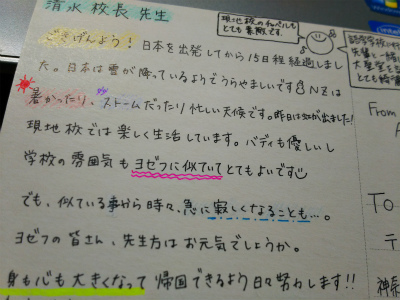 清水 校長 先生
現地校のチャペルも
とても素敵です。
ごきげんよう! 日本を出発してから15日程経過しまし
た。日本は雪が降っているようでうらやましいです NZは
暑かったり、ストームだったり忙しい天候です。昨日は虹が出ました!
現地校では楽しく生活しています。バディも優しいし
学校の雰囲気もヨゼフに似ていてとてもよいです
でも、似ている事から時々、急に寂しくなることも…。
ヨゼフの皆さん、先生方はお元気でしょうか。
身も心も大きくなって帰国できるよう日々努力します!!
語学学校
先輩と一緒
大聖堂
とても綺麗
From
To
〒
神奈